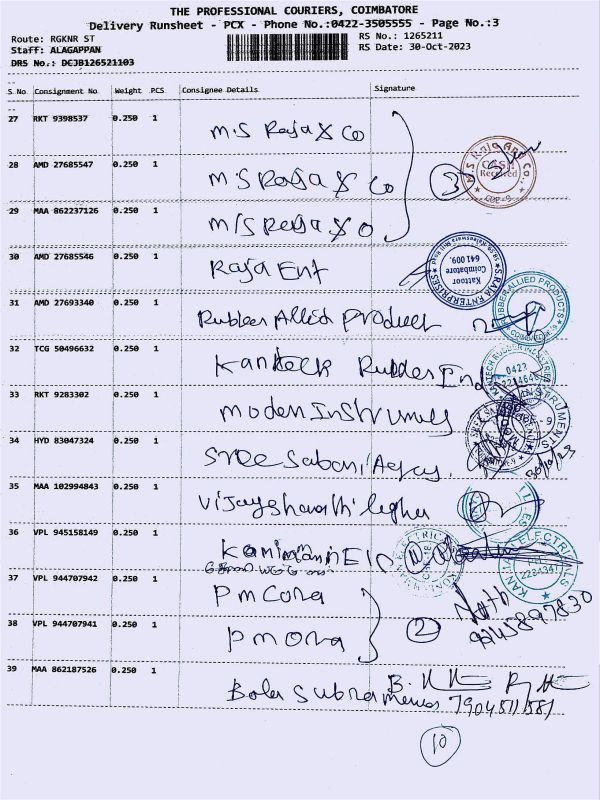 THE PROFESSIONAL COURIERS, COIMBATORE
Delivery Runsheet - PCX - Phone No.:0422-3505555 - Page No.:3
Route: RGKNR ST RS No.: 1265211
Staff: ALAGAPPAN RS Date: 30-Oct-2023
DRS No.: DCJB126521103
S No Consignment No Weight PCS Consignee Details Signature
27 RKT 9398537 0.250 1
M.S Raja & Co
28 AMD 27685547 0.250 1
M.S Raja & Co 3
M.S. Raja And Co.,
CASH
Received
CBE-9
29 MAA 862237126 0.250 1
M/S Raja & O
30 AMD 27685546 0.250 1
Raja Ent
Kattoor
Coimbatore
641 009.
31 AMD 27693340 0.250 1
Rubber Allied Product
RUBBER ALLIED PRODUCTS
32 TCG 50496632 0.250 1
Kantech Rubber Ind
KANTECH RUBBER INDUSTRIES
0422
33 RKT 9283302 0.250 1
Modern Instrumens
34 HYD 83047324 0.250 1
Sree Sabari Agency.
30/10/23
35 MAA 102994843 0.250 1
36 VPL 945158149 0.250 1
37 VPL 944707942 0.250 1
PM Cora
Nath
38 VPL 944707941 0.250 1
PM Ora 2
39 MAA 862187526 0.250 1
Bala Subramenas 7904511581
10